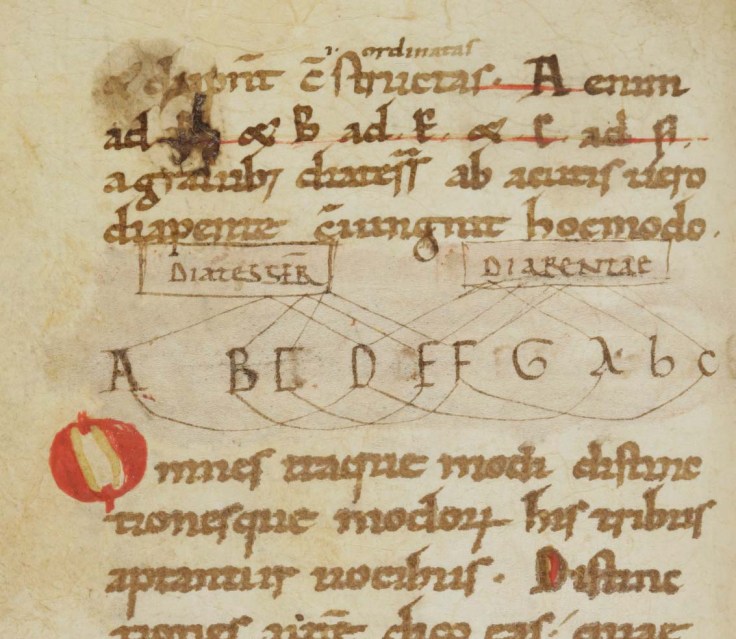 .i. ordinatas
diapñt c̄ structas. A enim
ad & B ad E & C ad F.
a grauib; diatess̄ ab acutis uero
diapente c̄iungunt hoc modo.
DIATESSER̄ DIAPENTAE
A B C D E F G a b c
Omnes itaque modi distinc
tionesque modorꝝ his tribus
aptantur uocibus. Distinc